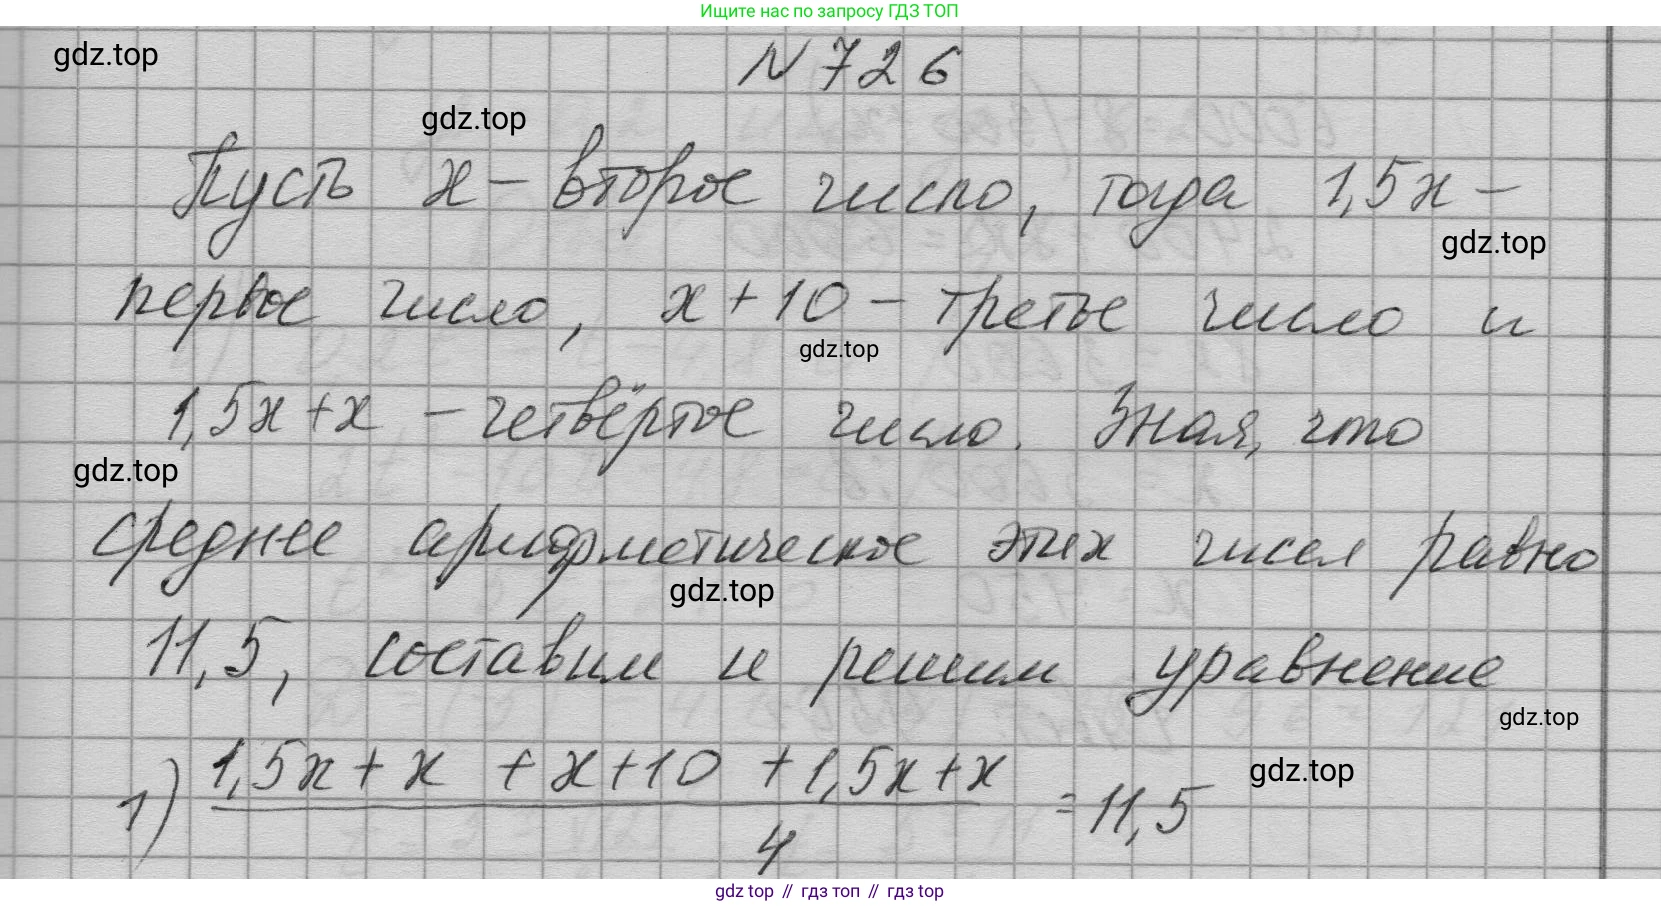 Ищите нас по запросу ГДЗ ТОП
gdz.top
N 726
gdz.top
Пусть x – второе число, тогда 1,5x –
gdz.top
первое число, x + 10 – третье число и
gdz.top
1,5x + x – четвёртое число. Зная, что
gdz.top
среднее арифметическое этих чисел равно
gdz.top
11,5, составим и решим уравнение
gdz.top
1) (1,5x + x + x + 10 + 1,5x + x) / 4 = 11,5
gdz.top
gdz top // гдз топ // gdz top